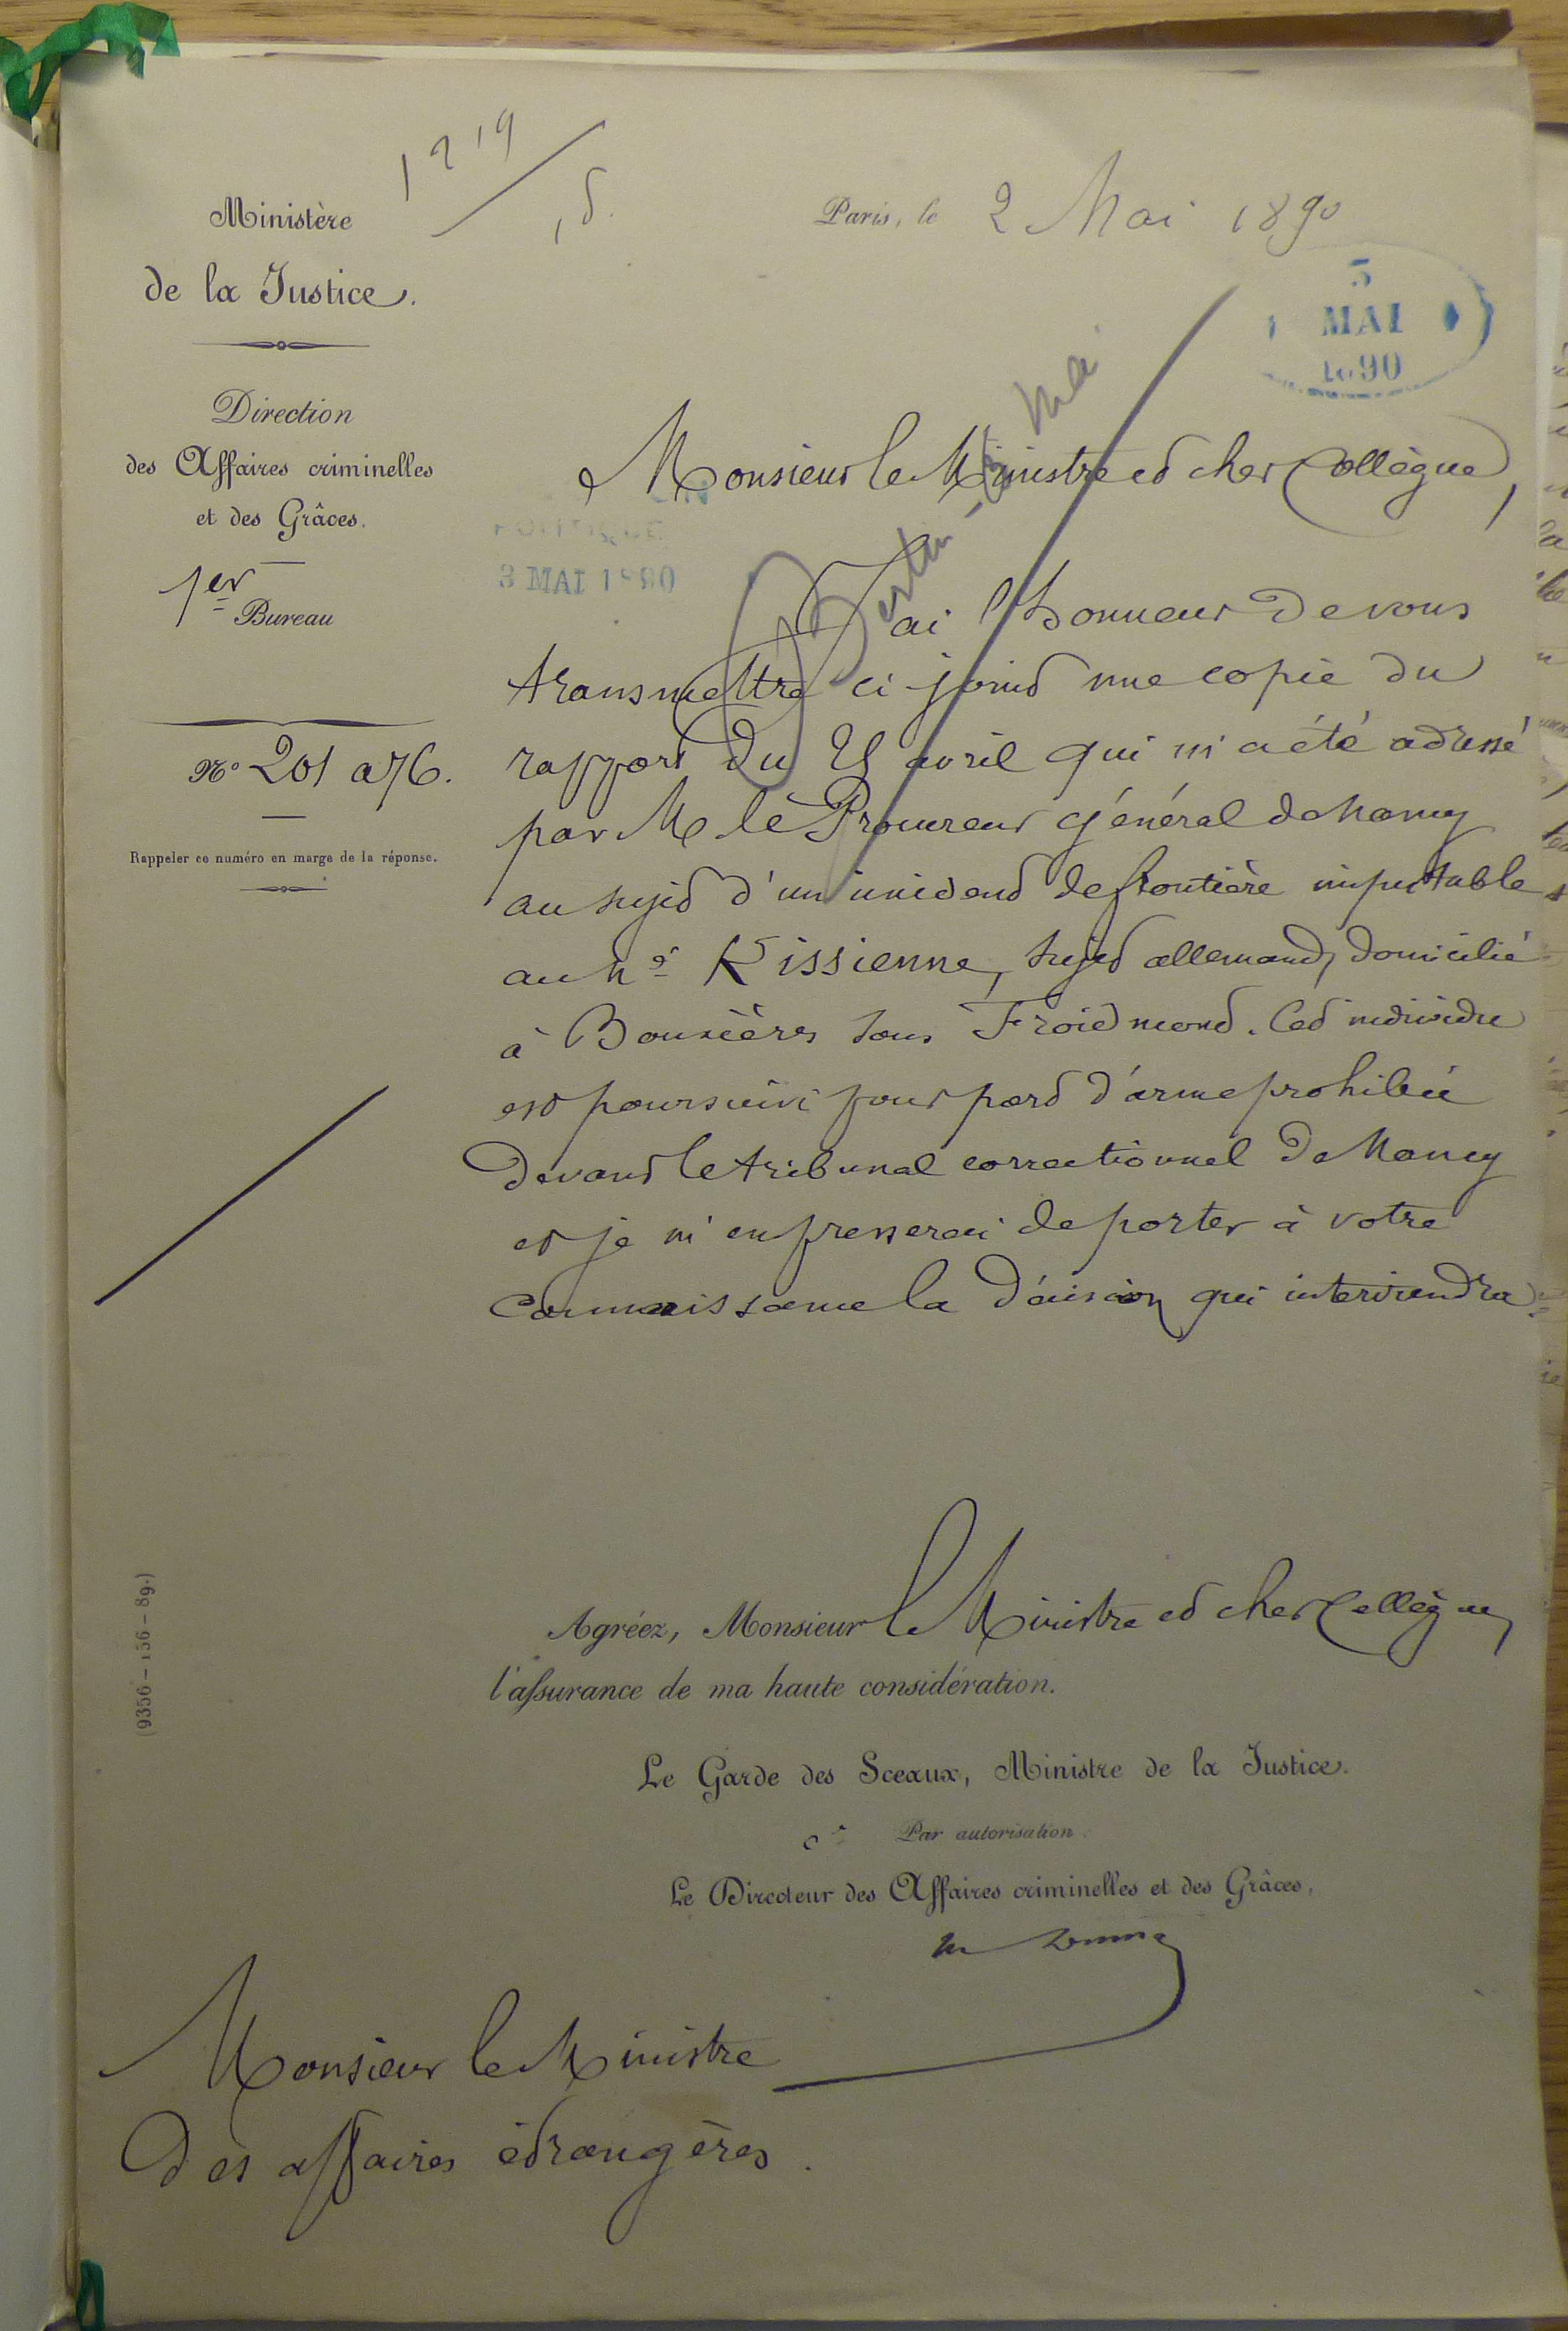 1219
15.
Ministère
de la Justice.
Direction
des Affaires criminelles
et des Grâces.
1er Bureau
No 201 a 76.
Rappeler ce numéro en marge de la réponse.
(9356-156-89.)
Paris, le 2 Mai 1890
3
MAI
1890
3 MAI 1890
Berlin
Mai
Monsieur le Ministre et cher Collègue,
J'ai l'honneur de vous
transmettre ci-joint une copie du
rapport du avril qui m'a été adressé
par M le Procureur général de Nancy
au sujet d'un incident de frontière imputable
au né Kissienne, sujet allemand, domicilié
à Bouxières sous Froidmont. Cet individu
est poursuivi pour port d'arme prohibée
devant le tribunal correctionnel de Nancy
et je m'empresserai de porter à votre
connaissance la décision qui interviendra.
Agréez, Monsieur le Ministre et cher Collègue,
l'assurance de ma haute considération.
Le Garde des Sceaux, Ministre de la Justice.
Par autorisation.
Le Directeur des Affaires criminelles et des Grâces,
Monsieur le Ministre
des affaires étrangères.